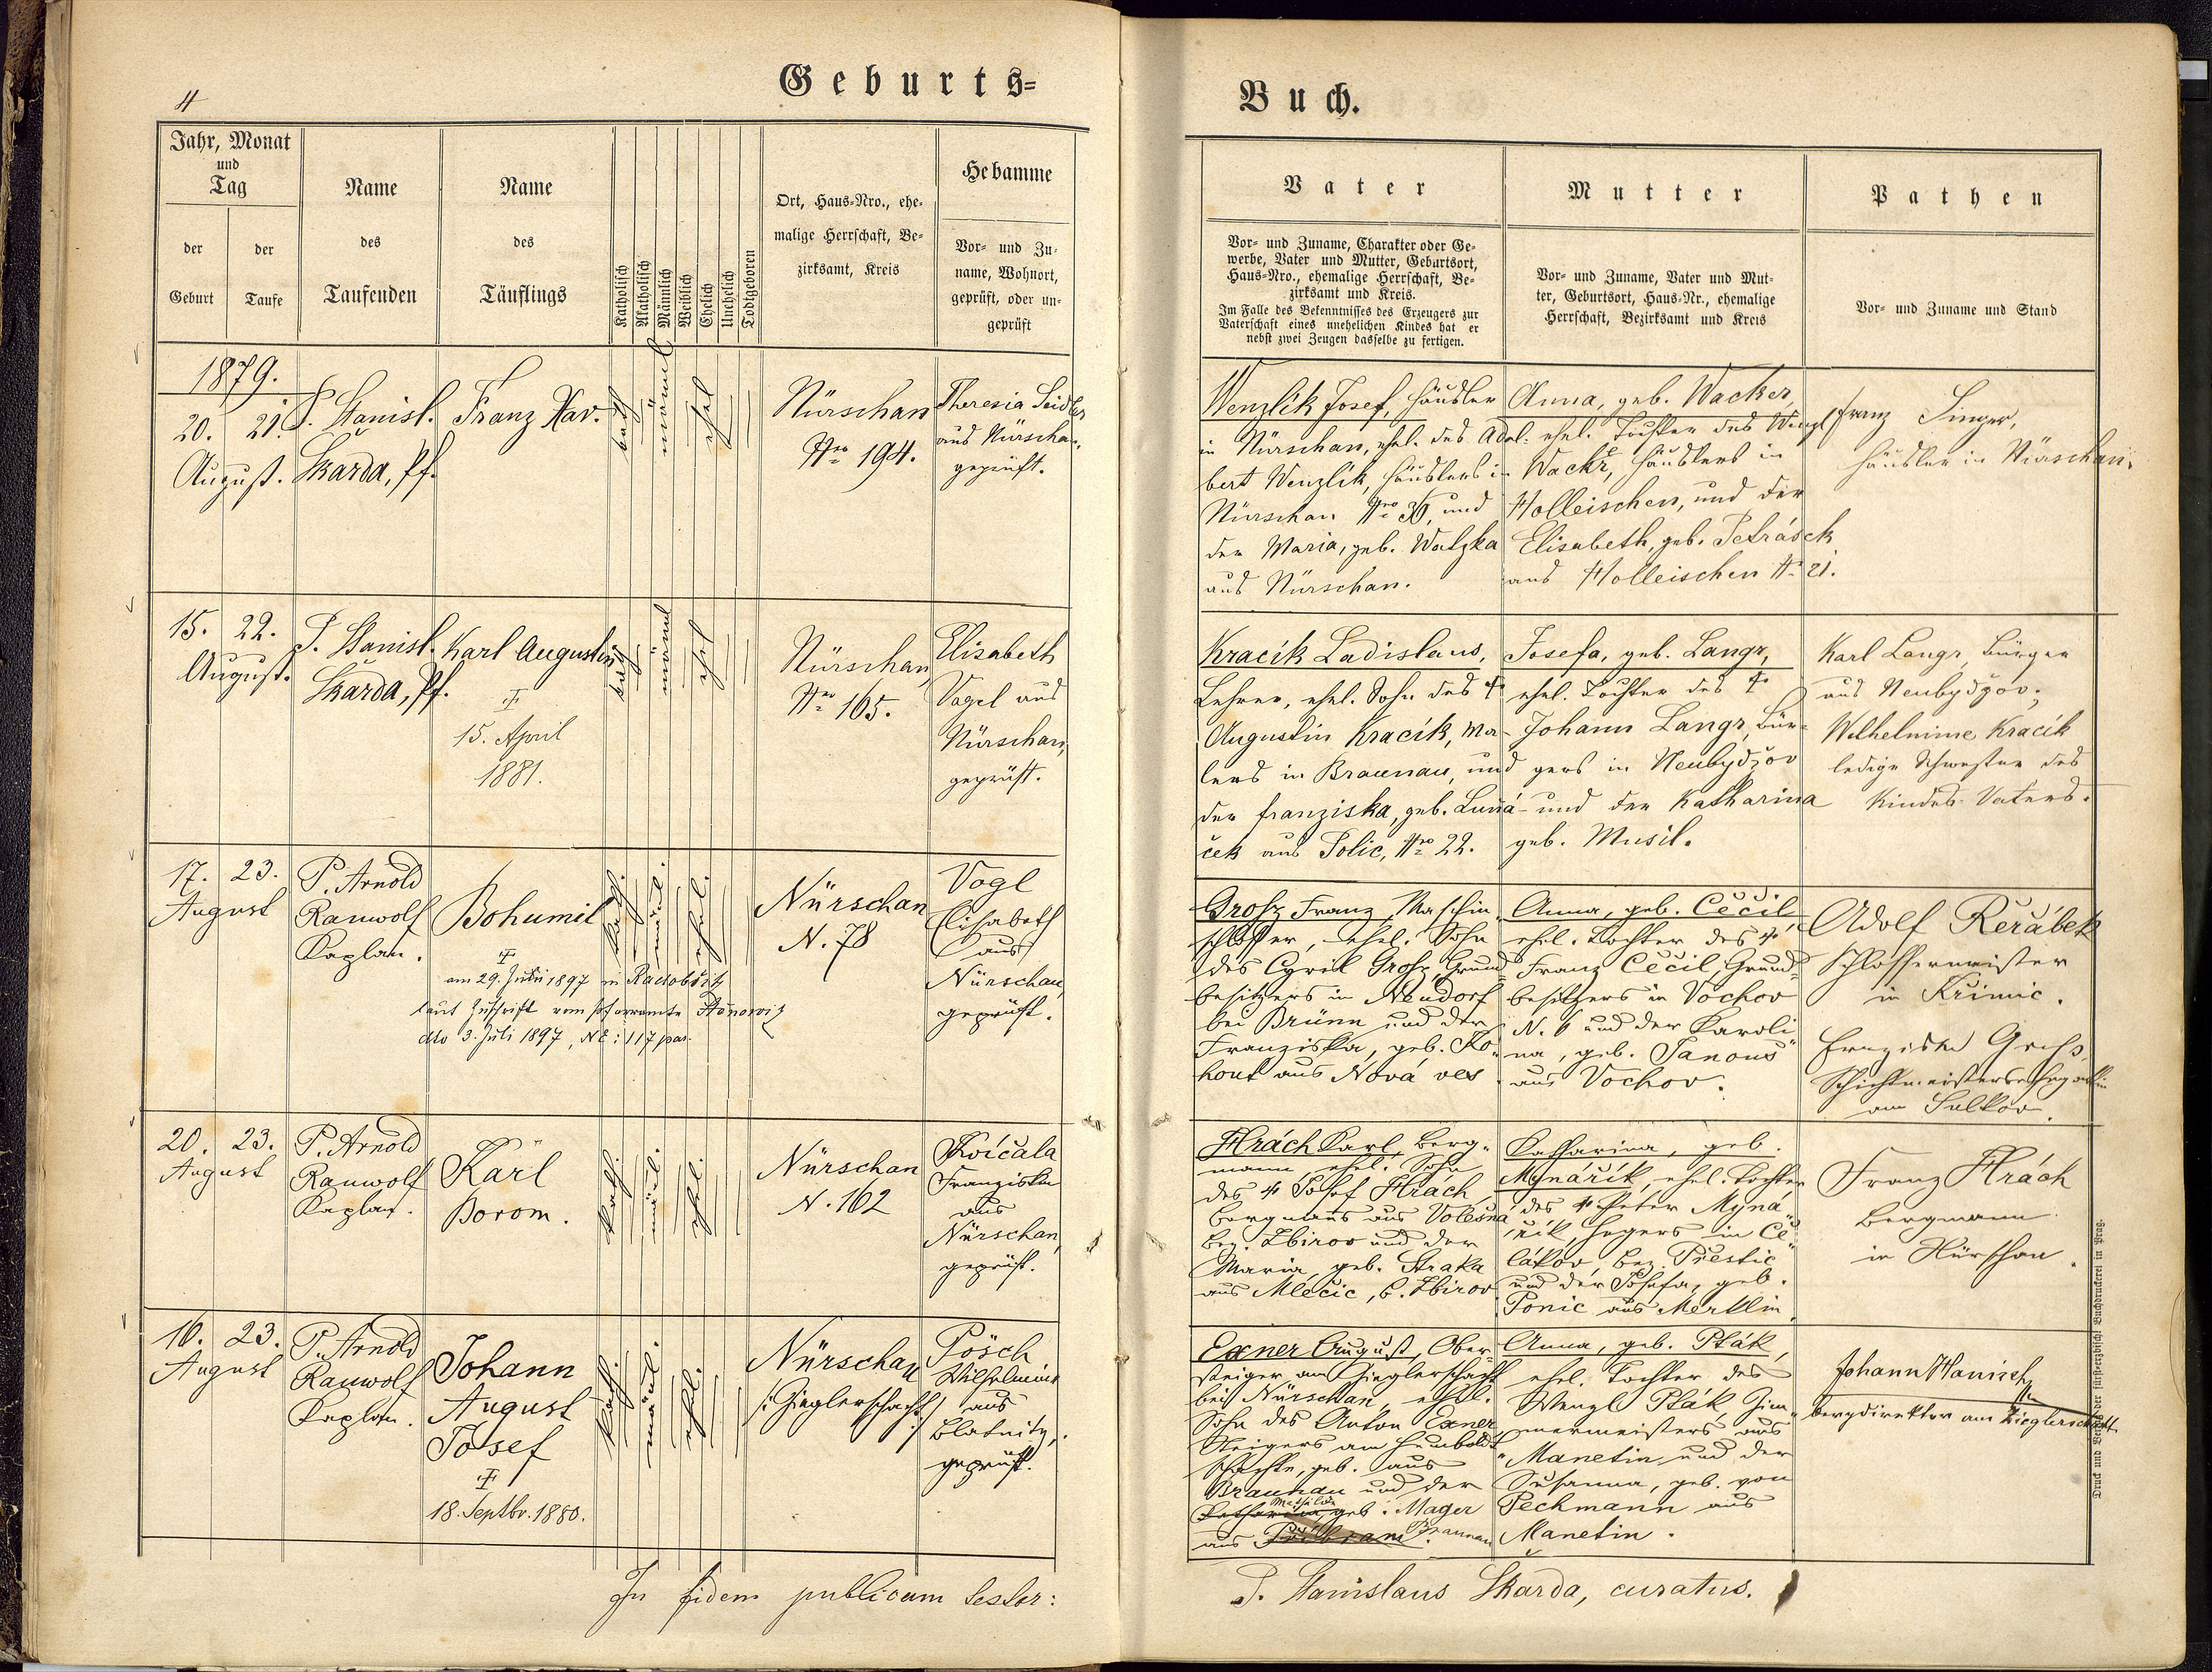 4
Geburts=
Buch.
Jahr, Monat
und
Tag
der
Geburt
der
Taufe
Name
des
Taufenden
Name
des
Täuflings
Katholisch
Akatholisch
Männlich
Weiblich
Ehelich
Unehelich
Todtgeboren
Ort, Haus-Nro., ehe-
malige Herrschaft, Be-
zirksamt, Kreis
Hebamme
Vor- und Zu-
name, Wohnort,
geprüft, oder un-
geprüft
Vater
Vor- und Zuname, Charakter oder Ge-
werbe, Vater und Mutter, Geburtsort,
Haus-Nro., ehemalige Herrschaft, Be-
zirksamt und Kreis.
Im Falle des Bekenntnisses des Erzeugers zur
Vaterschaft eines unehelichen Kindes hat er
nebst zwei Zeugen dasselbe zu fertigen.
Mutter
Vor- und Zuname, Vater und Mut-
ter, Geburtsort, Haus-Nr., ehemalige
Herrschaft, Bezirksamt und Kreis
Pathen
Vor- und Zuname und Stand
1879.
20. 21.
August.
P. Stanisl.
Škarda, Pf.
Franz Xav.
kath
männl
ehel
Nürschan
Nro 194.
Theresia Seidler
aus Nürschan,
geprüft.
Wenzlik Josef, Häusler
in Nürschan, ehel. des Adal-
bert Wenzlik, Häuslers in
Nürschan Nro 36, und
der Maria, geb. Watzka
aus Nürschan.
Anna, geb. Wacker,
ehel. Tochter des Wenzl
Wackr, Häuslers in
Holleischen, und der
Elisabeth, geb. Petrásek
aus Holleischen N. 21.
Franz Singer,
Häusler in Nürschan.
15. 22.
August.
P. Stanisl.
Škarda, Pf.
Karl Augustin
15. April
1881.
kath
männl
ehel
Nürschan,
Nro 165.
Elisabeth
Vogel aus
Nürschan,
geprüft.
Kracík Ladislaus,
Lehrer, ehel. Sohn des †
Augustin Kracík, Ma-
lers in Braunau, und
der Franziska, geb. Luňá-
ček aus Polic, Nro 22.
Josefa, geb. Langr,
ehel. Tochter des †
Johann Langr, Bür-
gers in Neubydžov
und der Katharina
geb. Musil.
Karl Langr, Bürger
aus Neubydžov;
Wilhelmine Kracík
ledige Schwester des
Kindes-Vaters.
17. 23.
August
P. Arnold
Rauwolf
Kaplan.
Bohumil
am 29. Juni 1897 in
laut Zuschrift vom Pfarramte
dto 3. Juli 1897, NE: 117 par.
kath.
männl.
ehel.
Nürschan
N. 78
Vogl
Elisabeth
aus
Nürschau,
geprüft.
Grosz Franz, Maschin-
schlosser, ehel. Sohn
des Cyrill Grosz, Grund-
besitzers in Neudorf
bei Brünn und der
Franziska, geb. Ko-
hout aus Nová ves
Anna, geb. Čečil
ehel. Tochter des †
Franz Čečil, Grund-
besitzers in Vochov
N. 6 und der Karoli-
na, geb. Janouš
aus Vochov.
Adolf Řeřábek
Schlossermeister
in Křimic.
Franziska Gross,
Schichtmeistersehegattin
am Sulkov.
20. 23.
August
P. Arnold
Rauwolf
Kaplan.
Karl
Borom.
kath.
männl.
ehel.
Nürschan
N. 162
Kvíčala
Franziska
aus
Nürschan,
geprüft.
Hrách Karl, Berg-
mann, ehel. Sohn
des † Josef Hrách,
Bergmans aus Volešna
Bez. Zbirov und der
Maria, geb. Straka
aus Mlečic, B. Zbirov
Katharina, geb.
Mynářík, ehel. Tochter
des † Peter Myná-
řík, Hegers in Če-
lákov, Bez. Přestic
und der Josefa, geb.
Ponic aus Merklin.
Franz Hrách
Bergmann
in Nürschan.
16. 23.
August
P. Arnold
Rauwolf
Kaplan.
Johann
August
Josef
18. Septbr. 1880.
kath.
männl.
ehel.
Nürschan
/: Zieglerschacht :/
Pösch
Wilhelmine
aus
Blatnitz,
geprüft.
Exner August, Ober-
steiger am Zieglerschacht
bei Nürschan, ehel.
Sohn des Anton Exner
Steigers am Humboldt
Schachte, geb. aus
Braunau und der
Mathilda
Katharina, geb. Mager
aus Přibram. Braunau
Anna, geb. Pták,
ehel. Tochter des
Wenzl Pták, Zim-
mermeisters aus
Manetin und der
Susanna, geb. von
Pechmann aus
Manetin.
Johann Hanisch
Bergdirektor am Zieglerschacht.
In fidem publicam testor:
P. Stanislaus Škarda, curatus.
Druck und Verlag der fürst-erzbischl. Buchdruckerei in Prag.